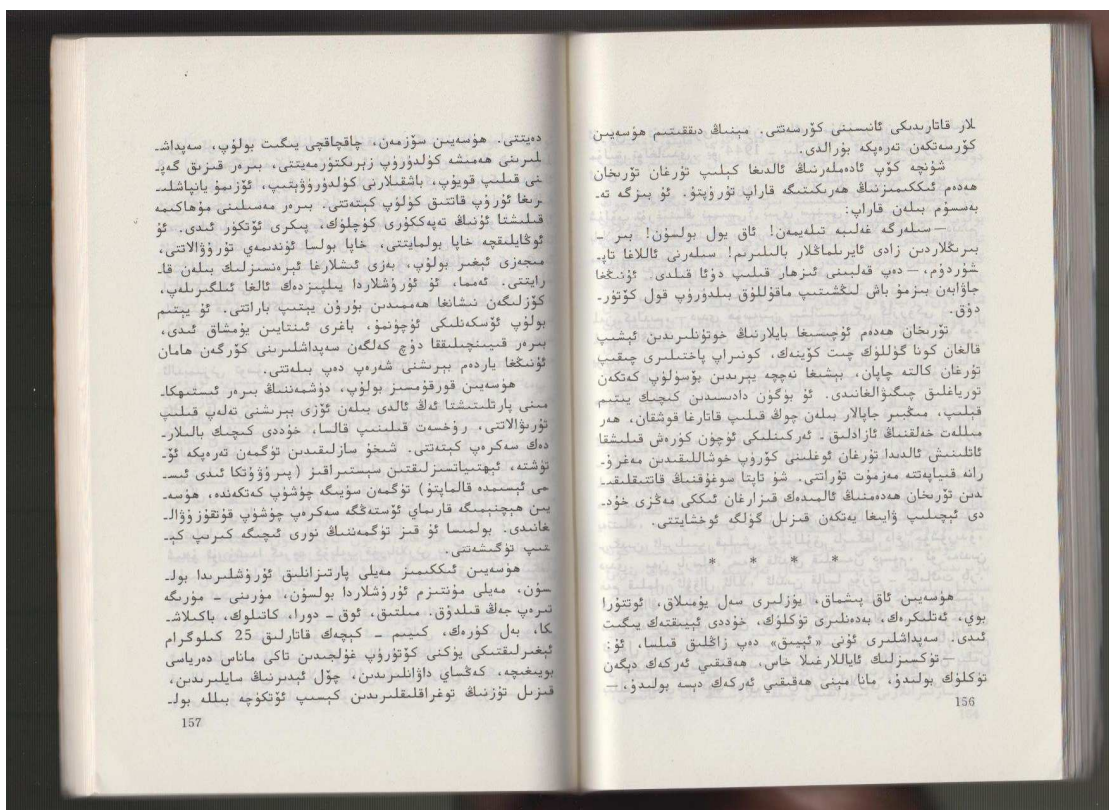 لار قاتارىدىكى ئانىسىنى كۆرسەتتى. مېنىڭ دىققىتىم ھۈسەيىن
كۆرسەتكەن تەرەپكە بۇرالدى.
شۇنچە كۆپ ئادەملەرنىڭ ئالدىغا كېلىپ تۇرغان تۇرىخان
ھەدەم ئىككىمىزنىڭ ھەرىكىتىگە قاراپ تۇرۇپتۇ. ئۇ بىزگە تە-
بەسسۇم بىلەن قاراپ:
— سىلەرگە غەلىبە تىلەيمەن! ئاق يول بولسۇن! بىر -
بىرىڭلاردىن زادى ئايرىلماڭلار بالىلىرىم! سىلەرنى ئاللاغا تاپ-
شۇردۇم، — دەپ قەلبىنى ئىزھار قىلىپ دۇئا قىلدى. ئۇنىڭغا
جاۋابەن بىزمۇ باش لىڭشىتىپ ماقۇللۇق بىلدۈرۈپ قول كۆتۈر-
دۇق.
تۇرىخان ھەدەم ئۇچىسىغا بايلارنىڭ خوتۇنلىرىدىن ئېشىپ
قالغان كونا گۈللۈك چىت كۆينەك، كونىراپ پاختىلىرى چىقىپ
تۇرغان كالتە چاپان، بېشىغا نەچچە يېرىدىن بۆسۈلۈپ كەتكەن
تورياغلىق چىگىۋالغانىدى. ئۇ بۈگۈن دادىسىدىن كىچىك يېتىم
قېلىپ، مىڭبىر جاپالار بىلەن چوڭ قىلىپ قاتارغا قوشقان، ھەر
مىللەت خەلقىنىڭ ئازادلىق - ئەركىنلىكى ئۈچۈن كۈرەش قىلىشقا
ئاتلىنىش ئالدىدا تۇرغان ئوغلىنى كۆرۈپ خوشاللىقىدىن مەغرۇ-
رانە قىياپەتتە مەزمۇت تۇراتتى. شۇ تاپتا سوغۇقنىڭ قاتتىقلىقى-
دىن تۇرىخان ھەدەمنىڭ ئالمىدەك قىزارغان ئىككى مەڭزى خۇد-
دى ئېچىلىپ ۋايىغا يەتكەن قىزىل گۈلگە ئوخشايتتى.
* * * *
ھۈسەيىن ئاق پىشماق، يۈزلىرى سەل يۇمىلاق، ئوتتۇرا
بوي، ئەتلىكرەك، بەدەنلىرى تۈكلۈك، خۇددى ئېيىقتەك يىگىت
ئىدى. سەپداشلىرى ئۇنى «ئېيىق» دەپ زاڭلىق قىلسا، ئۇ:
— تۈكسىزلىك ئاياللارغىلا خاس، ھەقىقىي ئەركەك دېگەن
تۈكلۈك بولىدۇ، مانا مېنى ھەقىقىي ئەركەك دېسە بولىدۇ، —
156
دەيتتى. ھۈسەيىن سۆزمەن، چاقچاقچى يىگىت بولۇپ، سەپداش-
لىرىنى ھەمىشە كۈلدۈرۈپ زېرىكتۈرمەيتتى، بىرەر قىزىق گەپ-
نى قىلىپ قويۇپ، باشقىلارنى كۈلدۈرۈۋېتىپ، ئۆزىمۇ يانپاشلى-
رىغا ئۇرۇپ قاتتىق كۈلۈپ كېتەتتى. بىرەر مەسىلىنى مۇھاكىمە
قىلىشتا ئۇنىڭ تەپەككۇرى كۈچلۈك، پىكرى ئۆتكۈر ئىدى. ئۇ
ئوڭايلىقچە خاپا بولمايتتى، خاپا بولسا ئۈندىمەي تۇرۇۋالاتتى،
مىجەزى ئېغىر بولۇپ، بەزى ئىشلارغا ئېرەنسىزلىك بىلەن قا-
رايتتى. ئەمما، ئۇ ئۇرۇشلاردا يىلپىزدەك ئالغا ئىلگىرىلەپ،
كۆزلىگەن نىشانغا ھەممىدىن بۇرۇن يېتىپ باراتتى. ئۇ يېتىم
بولۇپ ئۆسكەنلىكى ئۈچۈنمۇ، باغرى ئىنتايىن يۇمشاق ئىدى،
بىرەر قىيىنچىلىققا دۇچ كەلگەن سەپداشلىرىنى كۆرگەن ھامان
ئۇنىڭغا ياردەم بېرىشنى شەرەپ دەپ بىلەتتى.
ھۈسەيىن قورقۇمسىز بولۇپ، دۈشمەننىڭ بىرەر ئىستىھكا-
مىنى پارتلىتىشتا ئەڭ ئالدى بىلەن ئۆزى بېرىشنى تەلەپ قىلىپ
تۇرىۋالاتتى، رۇخسەت قىلىنىپ قالسا، خۇددى كىچىك بالىلار-
دەك سەكرەپ كېتەتتى. شىخۇ سازلىقىدىن تۈگمەن تەرەپكە ئۆ-
تۈشتە، ئېھتىياتسىزلىقتىن سېستىراقىز (پىرۋۇۋتكا ئىدى ئىس-
مى ئېسىمدە قالماپتۇ) تۈگمەن سۈيىگە چۈشۈپ كەتكەندە، ھۈسە-
يىن ھېچنېمىگە قارىماي ئۆستەڭگە سەكرەپ چۈشۈپ قۇتقۇزۇۋال-
غانىدى. بولمىسا ئۇ قىز تۈگمەننىڭ نورى ئىچىگە كىرىپ كې-
تىپ تۈگىشەتتى.
ھۈسەيىن ئىككىمىز مەيلى پارتىزانلىق ئۇرۇشلىرىدا بول-
سۇن، مەيلى مۇنتىزىم ئۇرۇشلاردا بولسۇن، مۈرىنى - مۈرىگە
تىرەپ جەڭ قىلدۇق. مىلتىق، ئوق - دورا، كاتىلوك، باكىلاش-
كا، بەل كۈرەك، كىيىم - كېچەك قاتارلىق 25 كىلوگرام
ئېغىرلىقتىكى يۈكنى كۆتۈرۈپ غۇلجىدىن تاكى ماناس دەرياسى
بويىغىچە، كەڭساي داۋانلىرىدىن، چۆل ئېدىرنىڭ سايلىرىدىن،
قىزىل تۈزنىڭ توغراقلىقلىرىدىن كېسىپ ئۆتكۈچە بىللە بول-
157